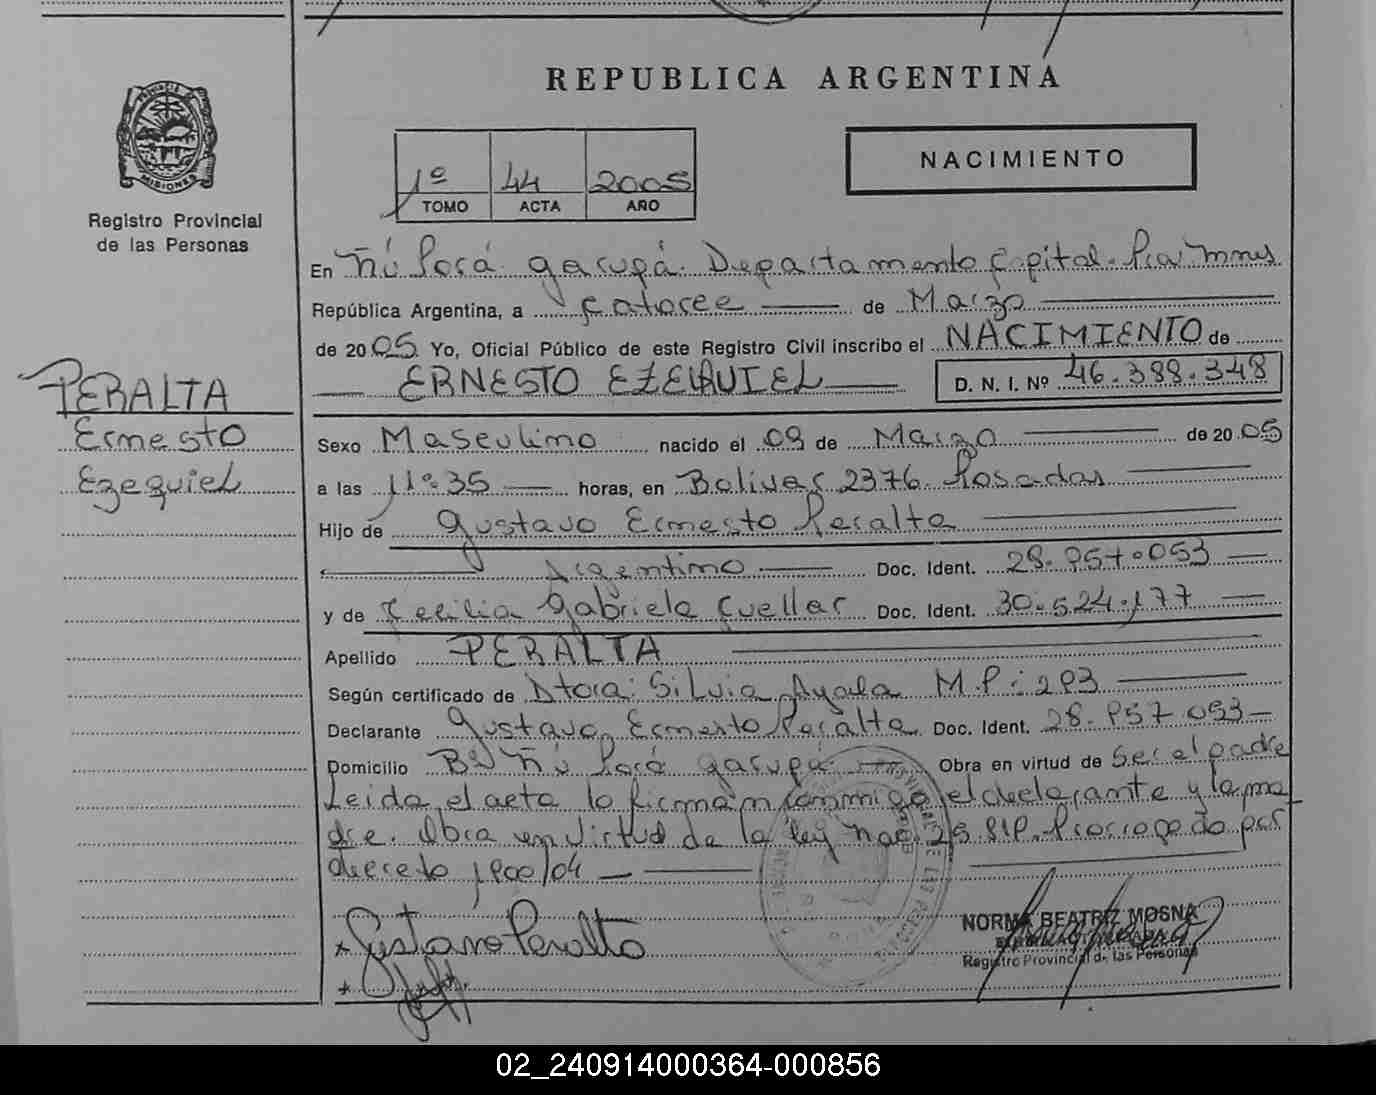 REPUBLICA ARGENTINA
PROVINCIA DE
MISIONES
Registro Provincial
de las Personas
1º 44 2005
TOMO ACTA AÑO
NACIMIENTO
En Ñú Porá. Garupá. Departamento Capital. Pcia Mnes
República Argentina, a catorce de Marzo
de 2005 Yo, Oficial Público de este Registro Civil inscribo el NACIMIENTO de
ERNESTO EZEQUIEL D. N. I. Nº 46.388.348
PERALTA
Ernesto
Ezequiel
Sexo Masculino nacido el 09 de Marzo de 2005
a las 11º35 horas, en Bolivar 2376. Posadas
Hijo de Gustavo Ernesto Peralta
Argentino Doc. Ident. 28.957.053
y de Cecilia Gabriela Cuellar Doc. Ident. 30.524.177
Apellido PERALTA
Según certificado de Dtora: Silvia Ayala M.P: 293
Declarante Gustavo Ernesto Peralta Doc. Ident. 28.957.053
Domicilio Bº Ñú Porá Garupá Obra en virtud de Ser el padre
Leida el acta lo firman conmigo el declarante y la ma
dre. Obra en virtud de la ley nac. 25.819. Prorrogado por
decreto 1900/04
Gustavo Peralta
NORMA BEATRIZ MOSNA
Registro Provincial de las Personas
02_240914000364-000856